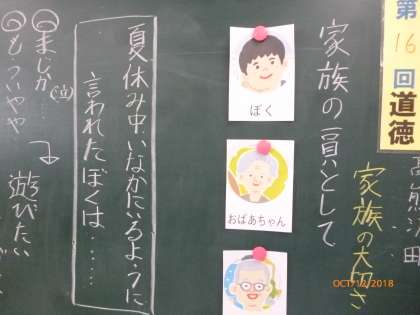 第16回道徳
家族の大切さ
家族の一員として
ぼく
おばあちゃん
夏休み中、いなかにいるように
言われたぼくは……
まじか…(泣)
も〜ういやや
遊びたい
OCT/12/2018